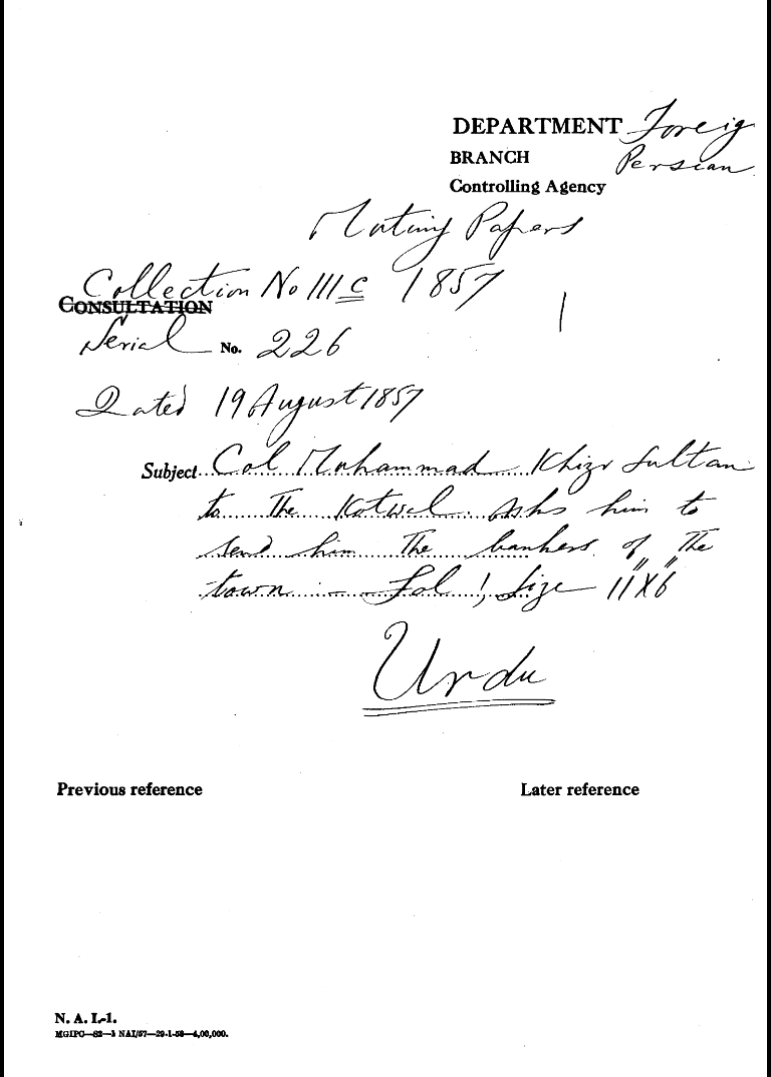 DEPARTMENT Foreig
BRANCH Persian
Controlling Agency
Mutiny Papers
Collection No III c 1857
CONSULTATION
Serial No. 226
Dated 19 August 1857
Subject Col Mohammad Khizr Sultan
to The Kotwal. Asks him to
send him The bankers of The
town :- Fol 1, Size 11"X6"
Urdu
Previous reference Later reference
N. A. I.-1.
MGIPC—S2—3 NAI/57—29-1-58—4,00,000.